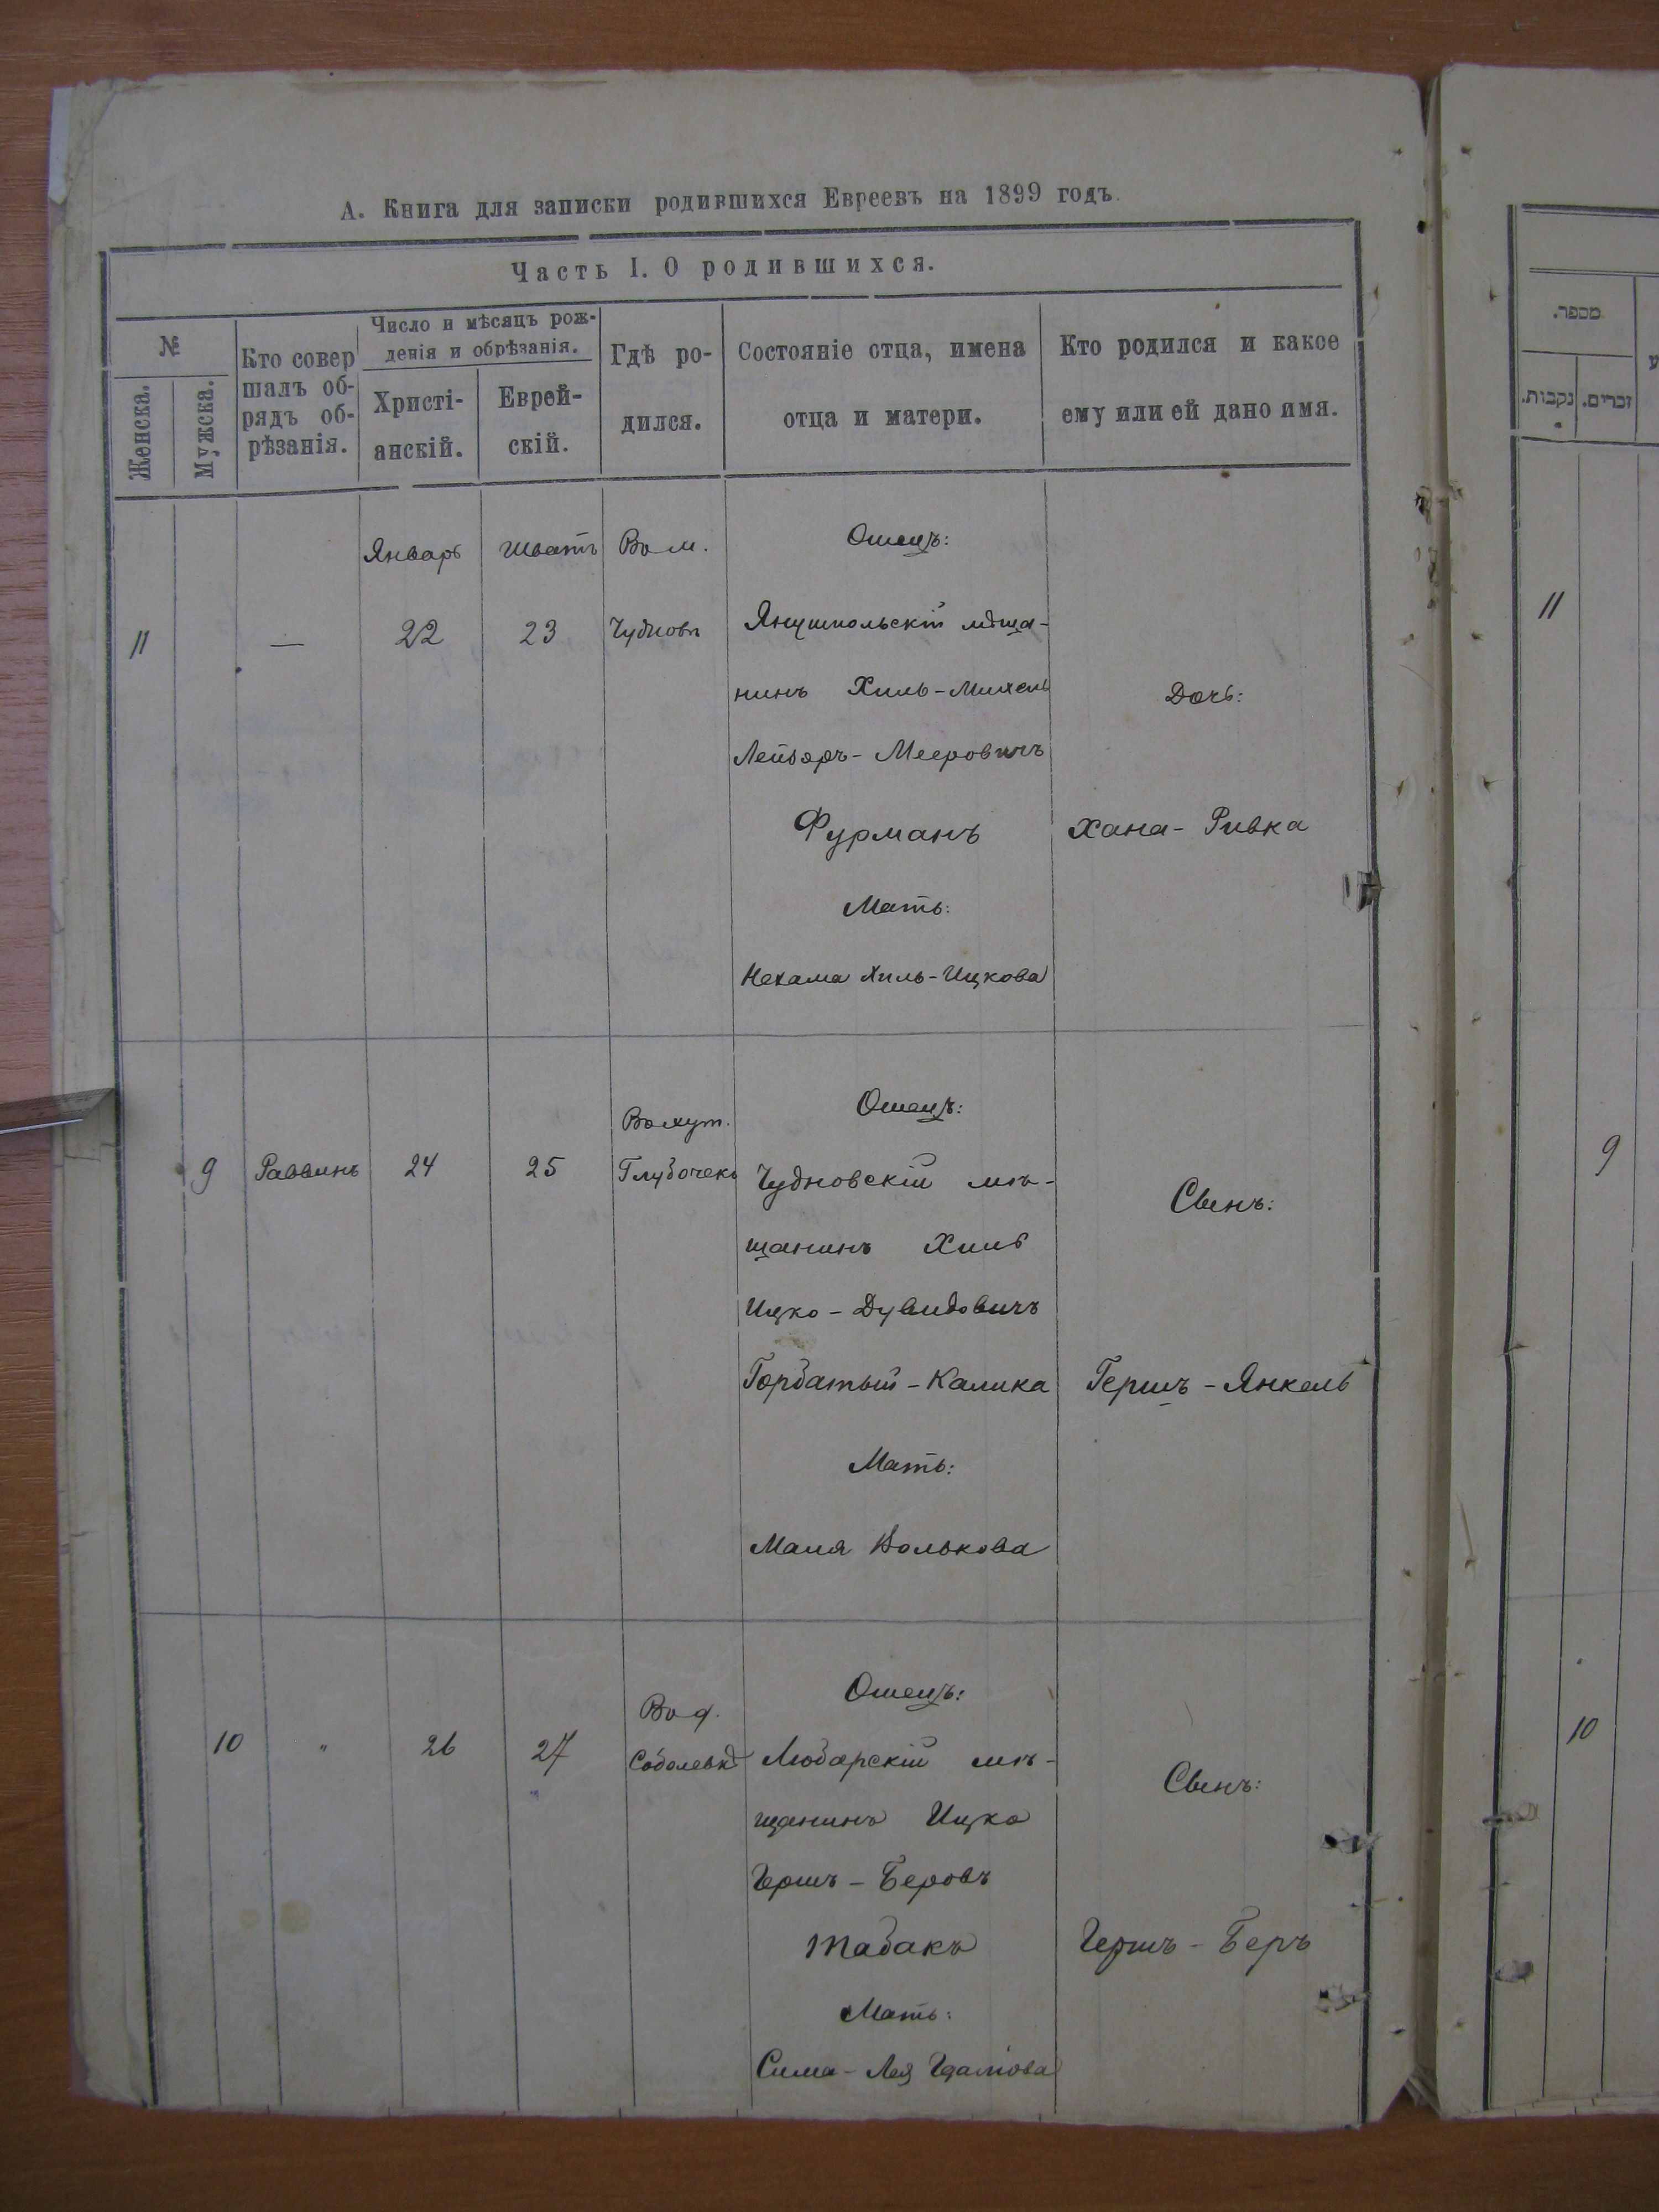 А. Книга для записки родившихся Евреевъ на 1899 годъ.
Часть I. О родившихся.
№
Женска.
Мужска.
Кто совер
шалъ об-
рядъ об-
рѣзанія.
Число и мѣсяцъ рож-
денія и обрѣзанія.
Христі-
анскій.
Еврей-
скій.
Гдѣ ро-
дился.
Состояніе отца, имена
отца и матери.
Кто родился и какое
ему или ей дано имя.
Январь
Шватъ
Въ м.
Отецъ:
11
—
22
23
Чудновъ
Янушпольскій мѣща-
нинъ Хиль-Михель
Лейзоръ-Мееровичъ
Фурманъ
Мать:
Нехама Хиль-Ицкова
Дочь:
Хана-Ривка
9
Раввинъ
24
25
Въ хут.
Глубочекъ
Отецъ:
Чудновскій мѣ-
щанинъ Хиль
Ицко-Дувидовичъ
Горбатый-Калика
Мать:
Маля Волькова
Сынъ:
Гершъ-Янкель
10
"
26
27
Въ д.
Соболевкѣ
Отецъ:
Любарскій мѣ-
щанинъ Ицко
Гершъ-Беровъ
Табакъ
Мать:
Сима-Лея
Сынъ:
Гершъ-Беръ
מספר.
נקבות.
זכרים.
11
9
10